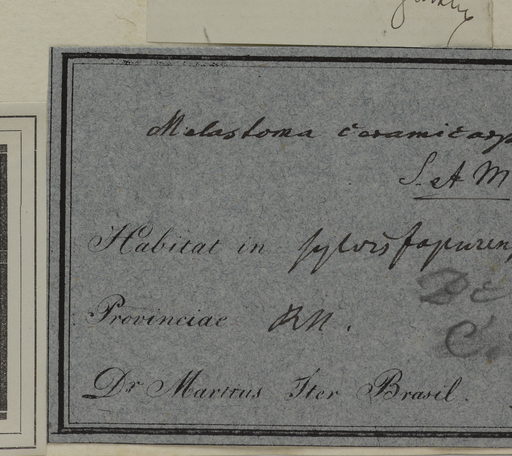 Melastoma ceramicarp
S. et M
Habitat in sylvis Japurens
Provinciae RN.
De
C.
Dr Martius Iter Brasil.